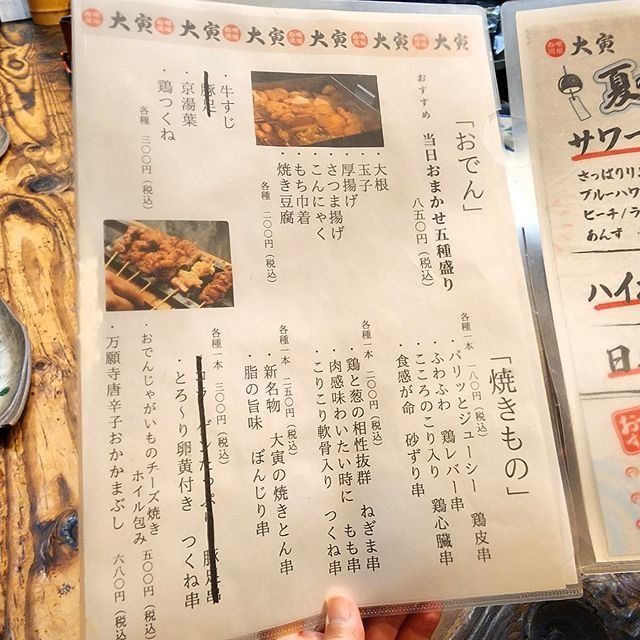 大寅 大寅 大寅 大寅 大寅 大寅
「おでん」
おすすめ 当日おまかせ五種盛り
八五〇円(税込)
・大根
・玉子
・厚揚げ
・さつま揚げ
・こんにゃく
・もち巾着
・焼き豆腐
各種 二〇〇円(税込)
・牛すじ
・豚足
・京湯葉
・鶏つくね
各種 三〇〇円(税込)
「焼きもの」
各種一本 一八〇円(税込)
・パリッとジューシー 鶏皮串
・ふわふわ 鶏レバー串
・こころのこり入り 鶏心臓串
・食感が命 砂ずり串
各種一本 二〇〇円(税込)
・鶏と葱の相性抜群 ねぎま串
・肉感味わいたい時に もも串
・こりこり軟骨入り つくね串
各種一本 二五〇円(税込)
・新名物 大寅の焼きとん串
・脂の旨味 ぼんじり串
各種一本 三〇〇円(税込)
・コラーゲンたっぷり 豚足串
・とろ〜り卵黄付き つくね串
・おでんじゃがいものチーズ焼き
ホイル包み 五〇〇円(税込)
・万願寺唐辛子おかかまぶし 六八〇円(税込)
大寅
夏
サワー
さっぱり
ブルーハワ
ピーチ/ラ
あんず
ハイボ
日